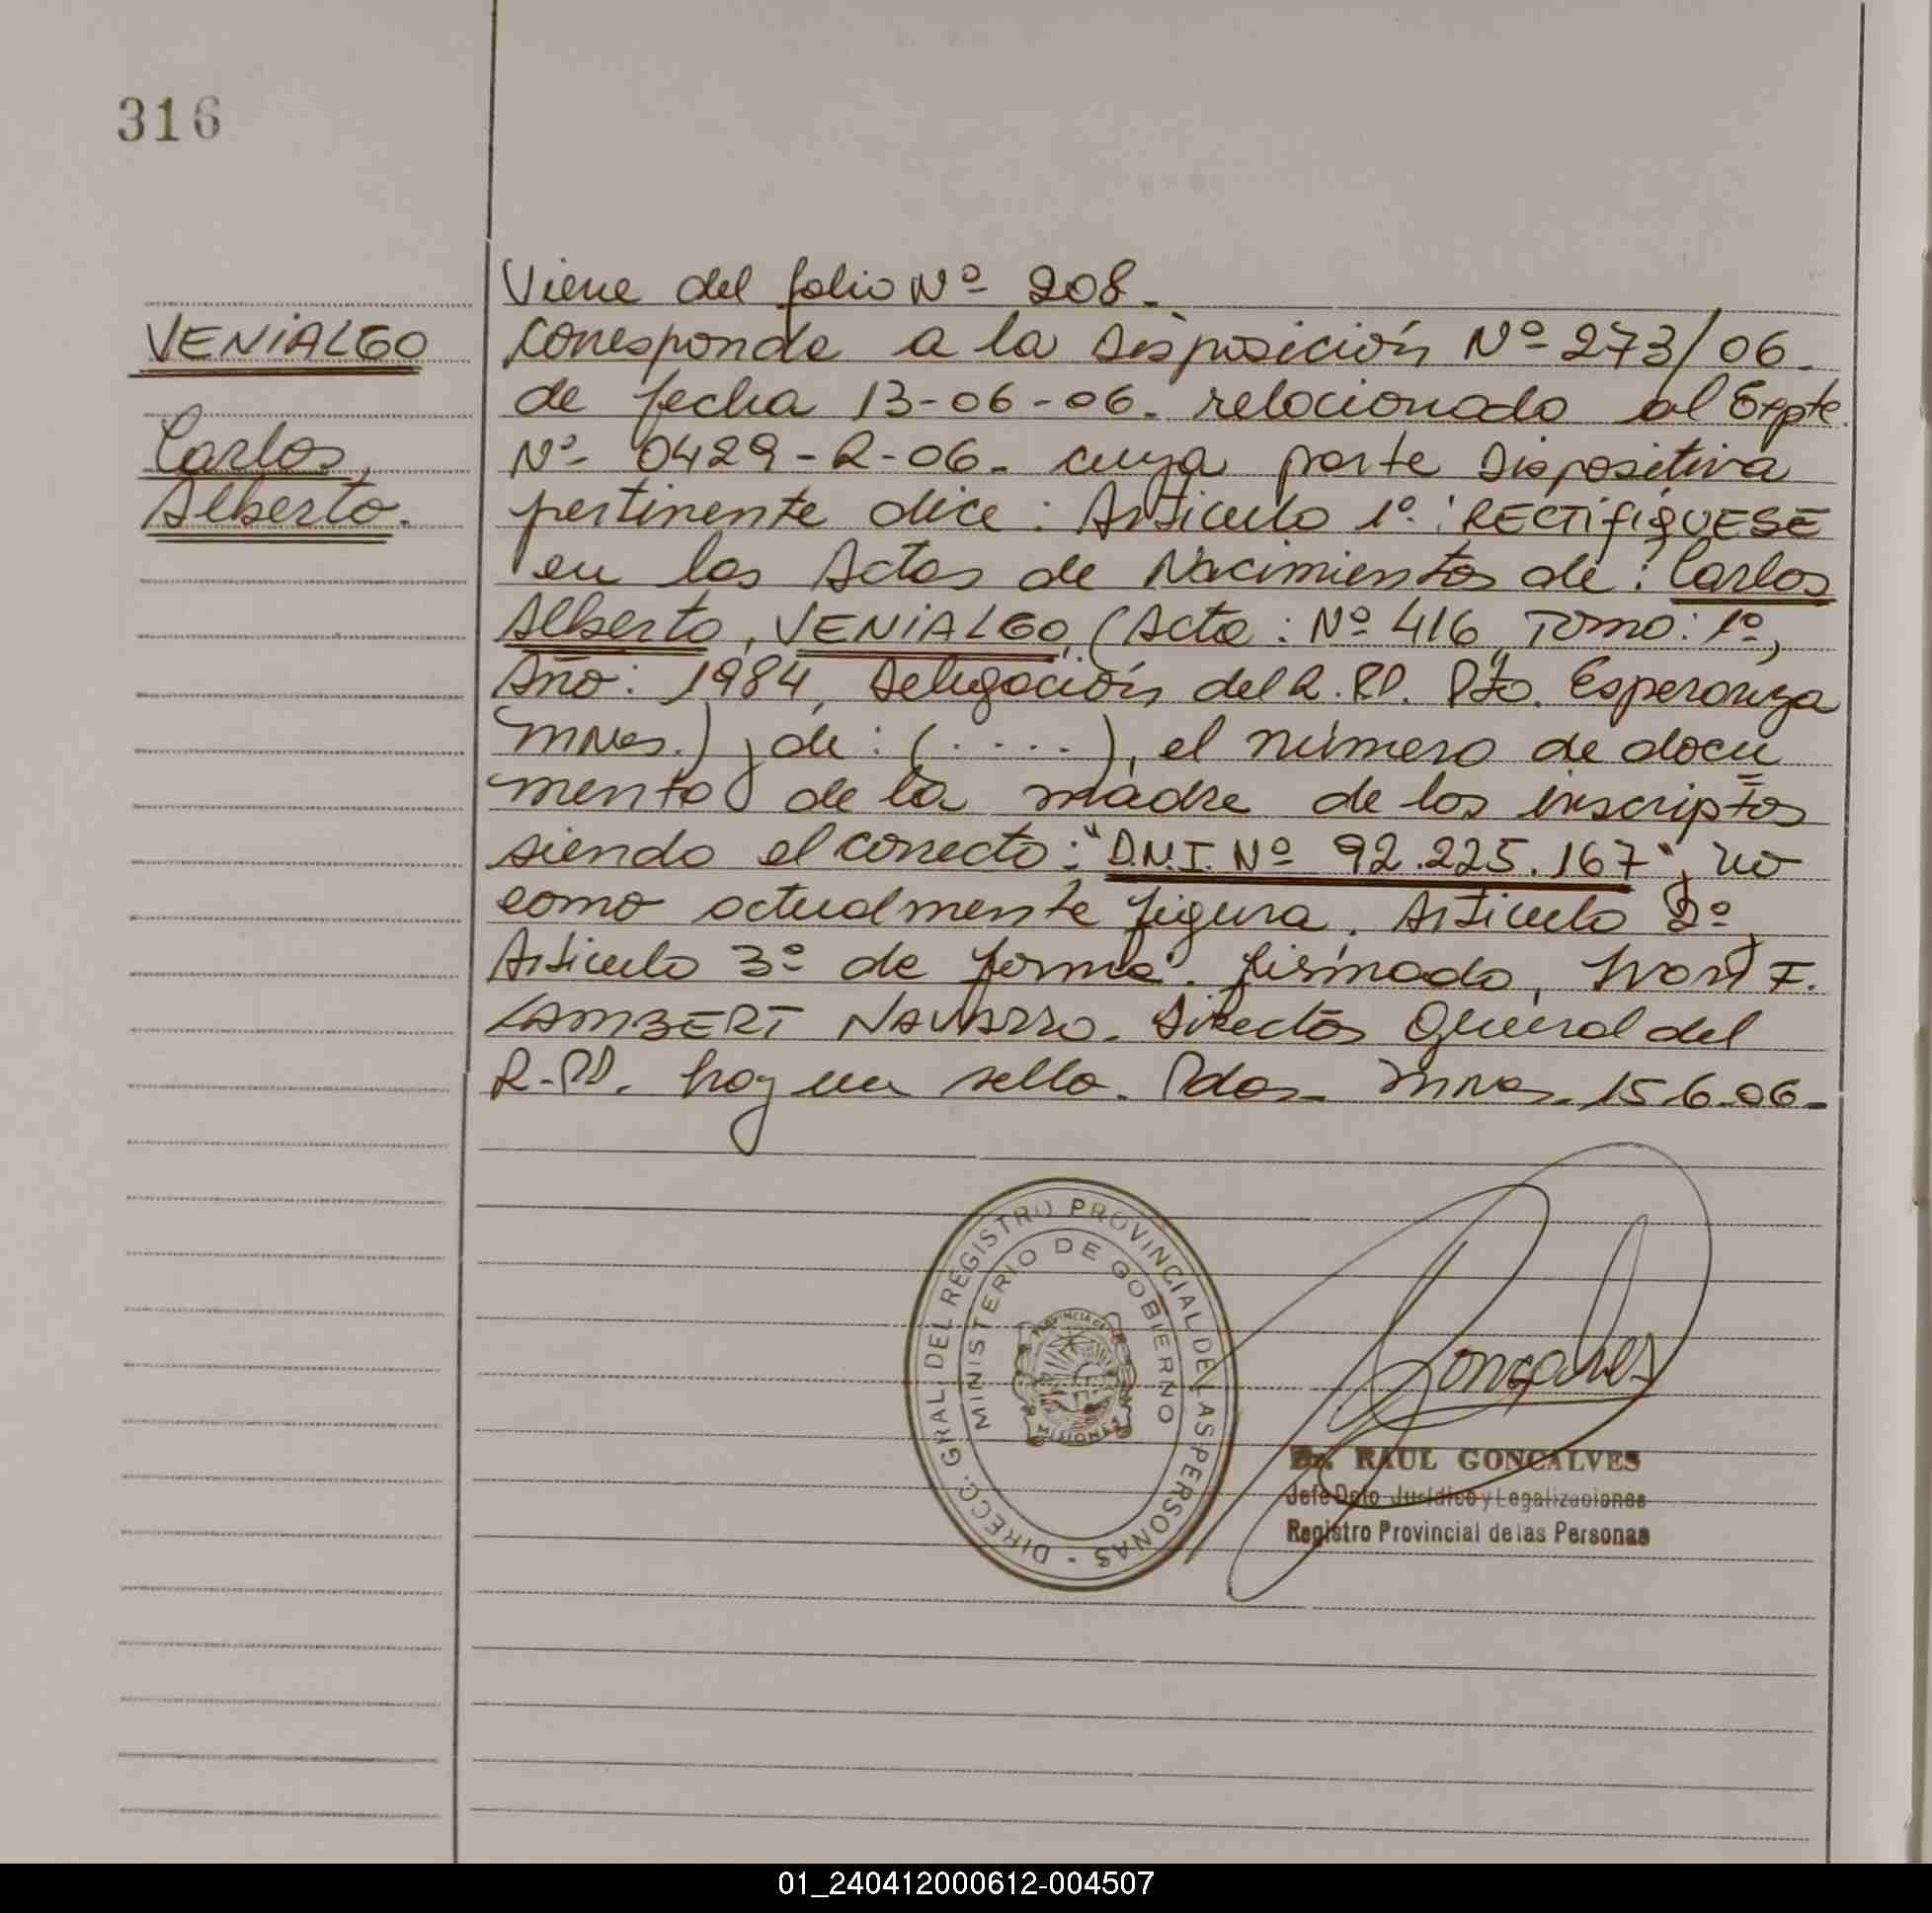 316
Viene del folio Nº 208.
VENIALGO
Corresponde a la Disposición Nº 273/06.
de fecha 13-06-06. relacionado al Expte.
Carlos,
Nº 0429-R-06. cuya parte Dispositiva
Alberto.
pertinente dice: Artículo 1º: RECTIFIQUESE
en las Actas de Nacimientos de: Carlos
Alberto, VENIALGO, (Acta: Nº 416, Tomo: 1º,
Año: 1984, Delegación del R.P.P. Pto. Esperanza
Mnes.) y de: (.....), el número de docu
mento de la madre de los inscriptos
siendo el correcto: "D.N.I. Nº 92.225.167", no
como actualmente figura. Artículo 2º,
Artículo 3º de forma. firmado, F.
LAMBERT NAVARRO. Director General del
R.P.P. hay un sello. Pdas. Mnes. 15.6.06.
DIRECC. GRAL. DEL REGISTRO PROVINCIAL DE LAS PERSONAS -
MINISTERIO DE GOBIERNO
PROVINCIA DE
MISIONES
Gonçalves
Dr. RAUL GONCALVES
Jefe Dpto Jurídico y Legalizaciones
Registro Provincial de las Personas
01_240412000612-004507